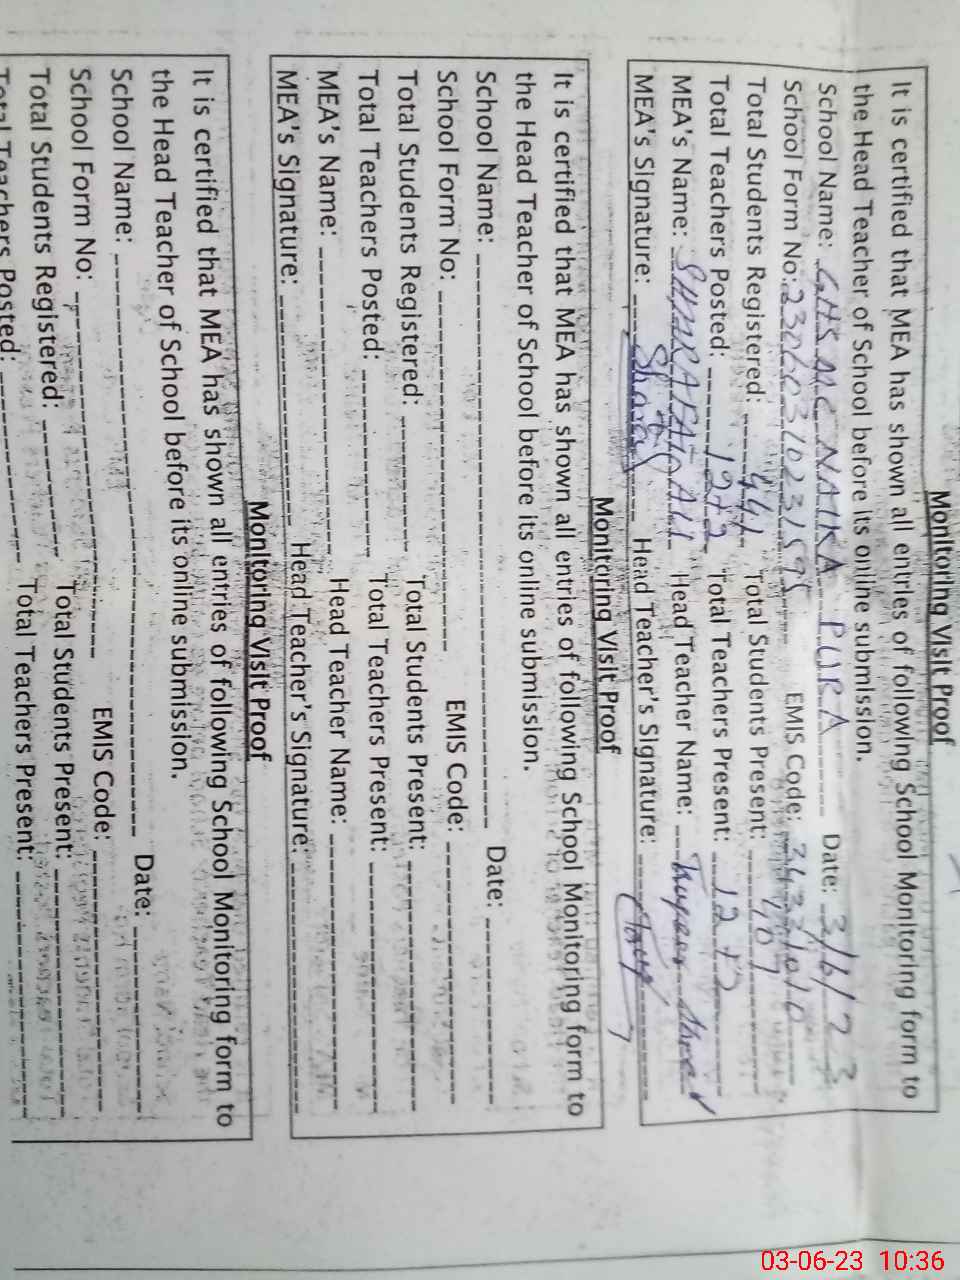 Monitoring Visit Proof
It is certified that MEA has shown all entries of following School Monitoring form to
the Head Teacher of School before its online submission.
School Name: GHS MC NAIKA PURA Date: 3/6/23
School Form No: EMIS Code:
Total Students Registered: 441 Total Students Present:
Total Teachers Posted: 12+2 Total Teachers Present: 12+2
MEA's Name: SHARAFAT ALI Head Teacher Name:
MEA's Signature: Head Teacher's Signature:
Monitoring Visit Proof
It is certified that MEA has shown all entries of following School Monitoring form to
the Head Teacher of School before its online submission.
School Name: Date:
School Form No: EMIS Code:
Total Students Registered: Total Students Present:
Total Teachers Posted: Total Teachers Present:
MEA's Name: Head Teacher Name:
MEA's Signature: Head Teacher's Signature:
Monitoring Visit Proof
It is certified that MEA has shown all entries of following School Monitoring form to
the Head Teacher of School before its online submission.
School Name: Date:
School Form No: EMIS Code:
Total Students Registered: Total Students Present:
Total Teachers Posted: Total Teachers Present:
03-06-23 10:36